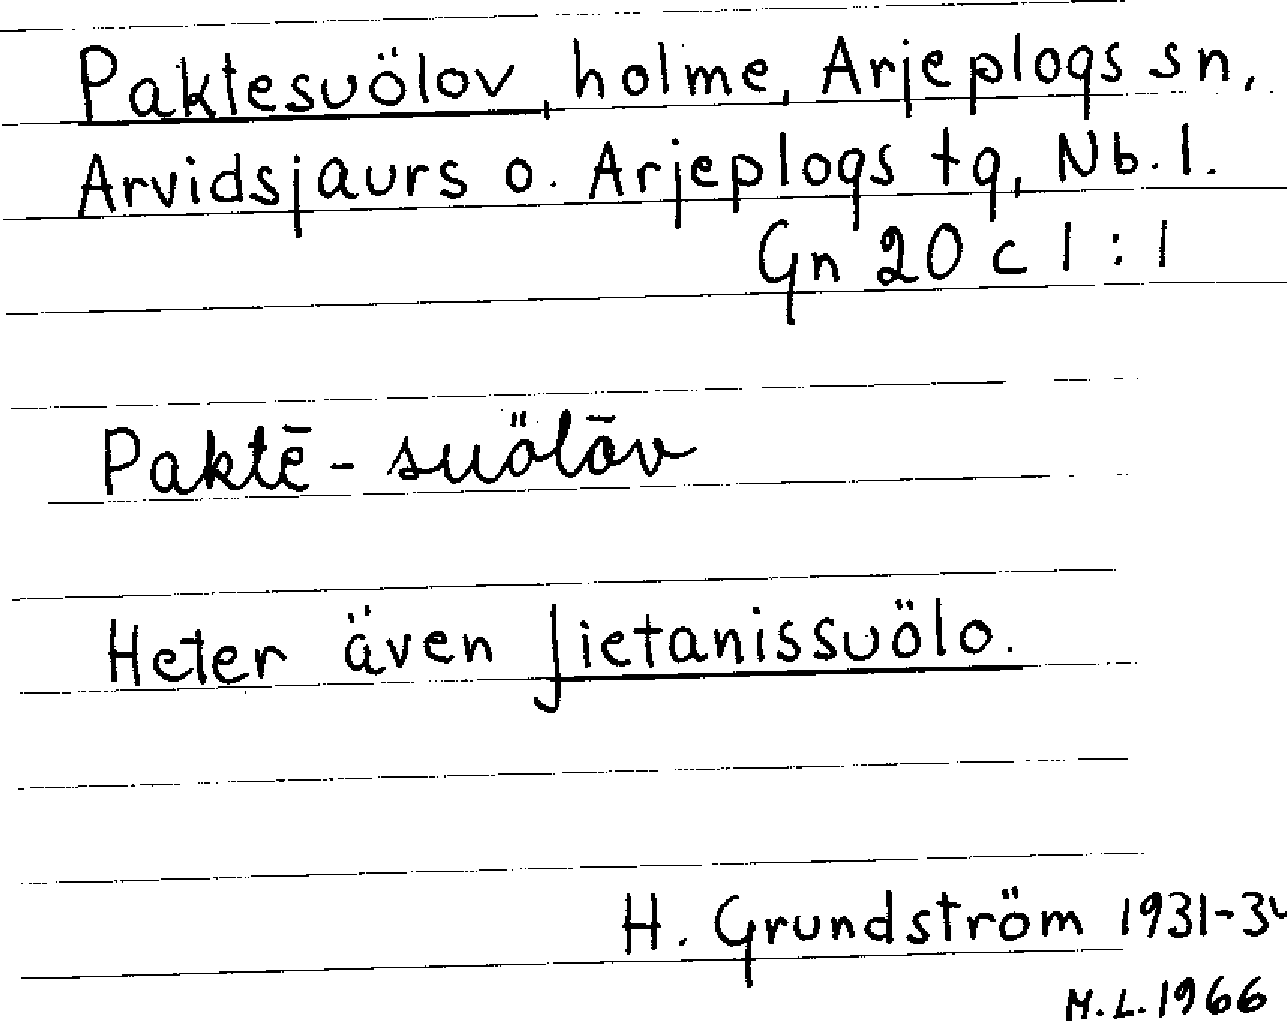 Paktesuölov, holme, Arjeplogs sn,
Arvidsjaurs o. Arjeplogs tg, Nb. l.
Gn 20 c 1 : 1
Paktē - suölōv
Heter även Jietanissuölo.
H. Grundström 1931-34
M.L. 1966